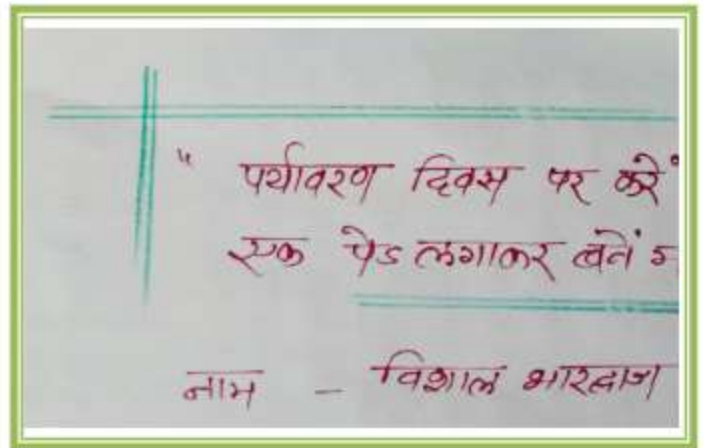 " पर्यावरण दिवस पर करें
एक पेड लगाकर बनें
नाम - विशाल भारद्वाज